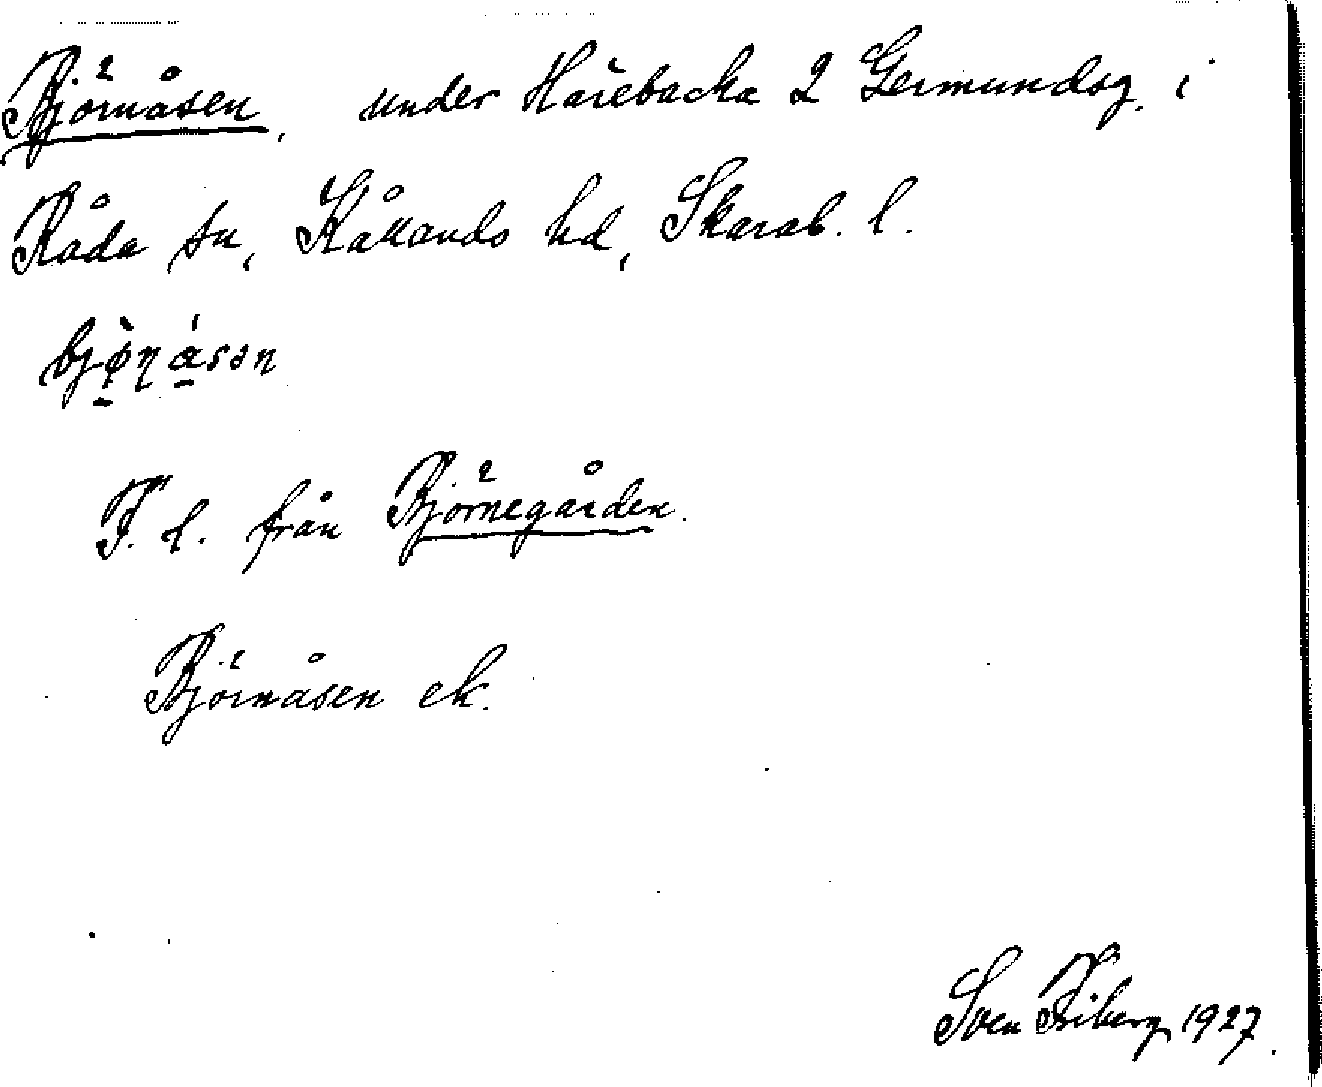 Björnåsen, under Harebacka 2 Germundsg. i
Råda sn, Kållands hd, Skarab. l.
bjø̀ṇásən
F. l. från Björnegården.
Björnåsen ek.
Sven Friberg 1927.